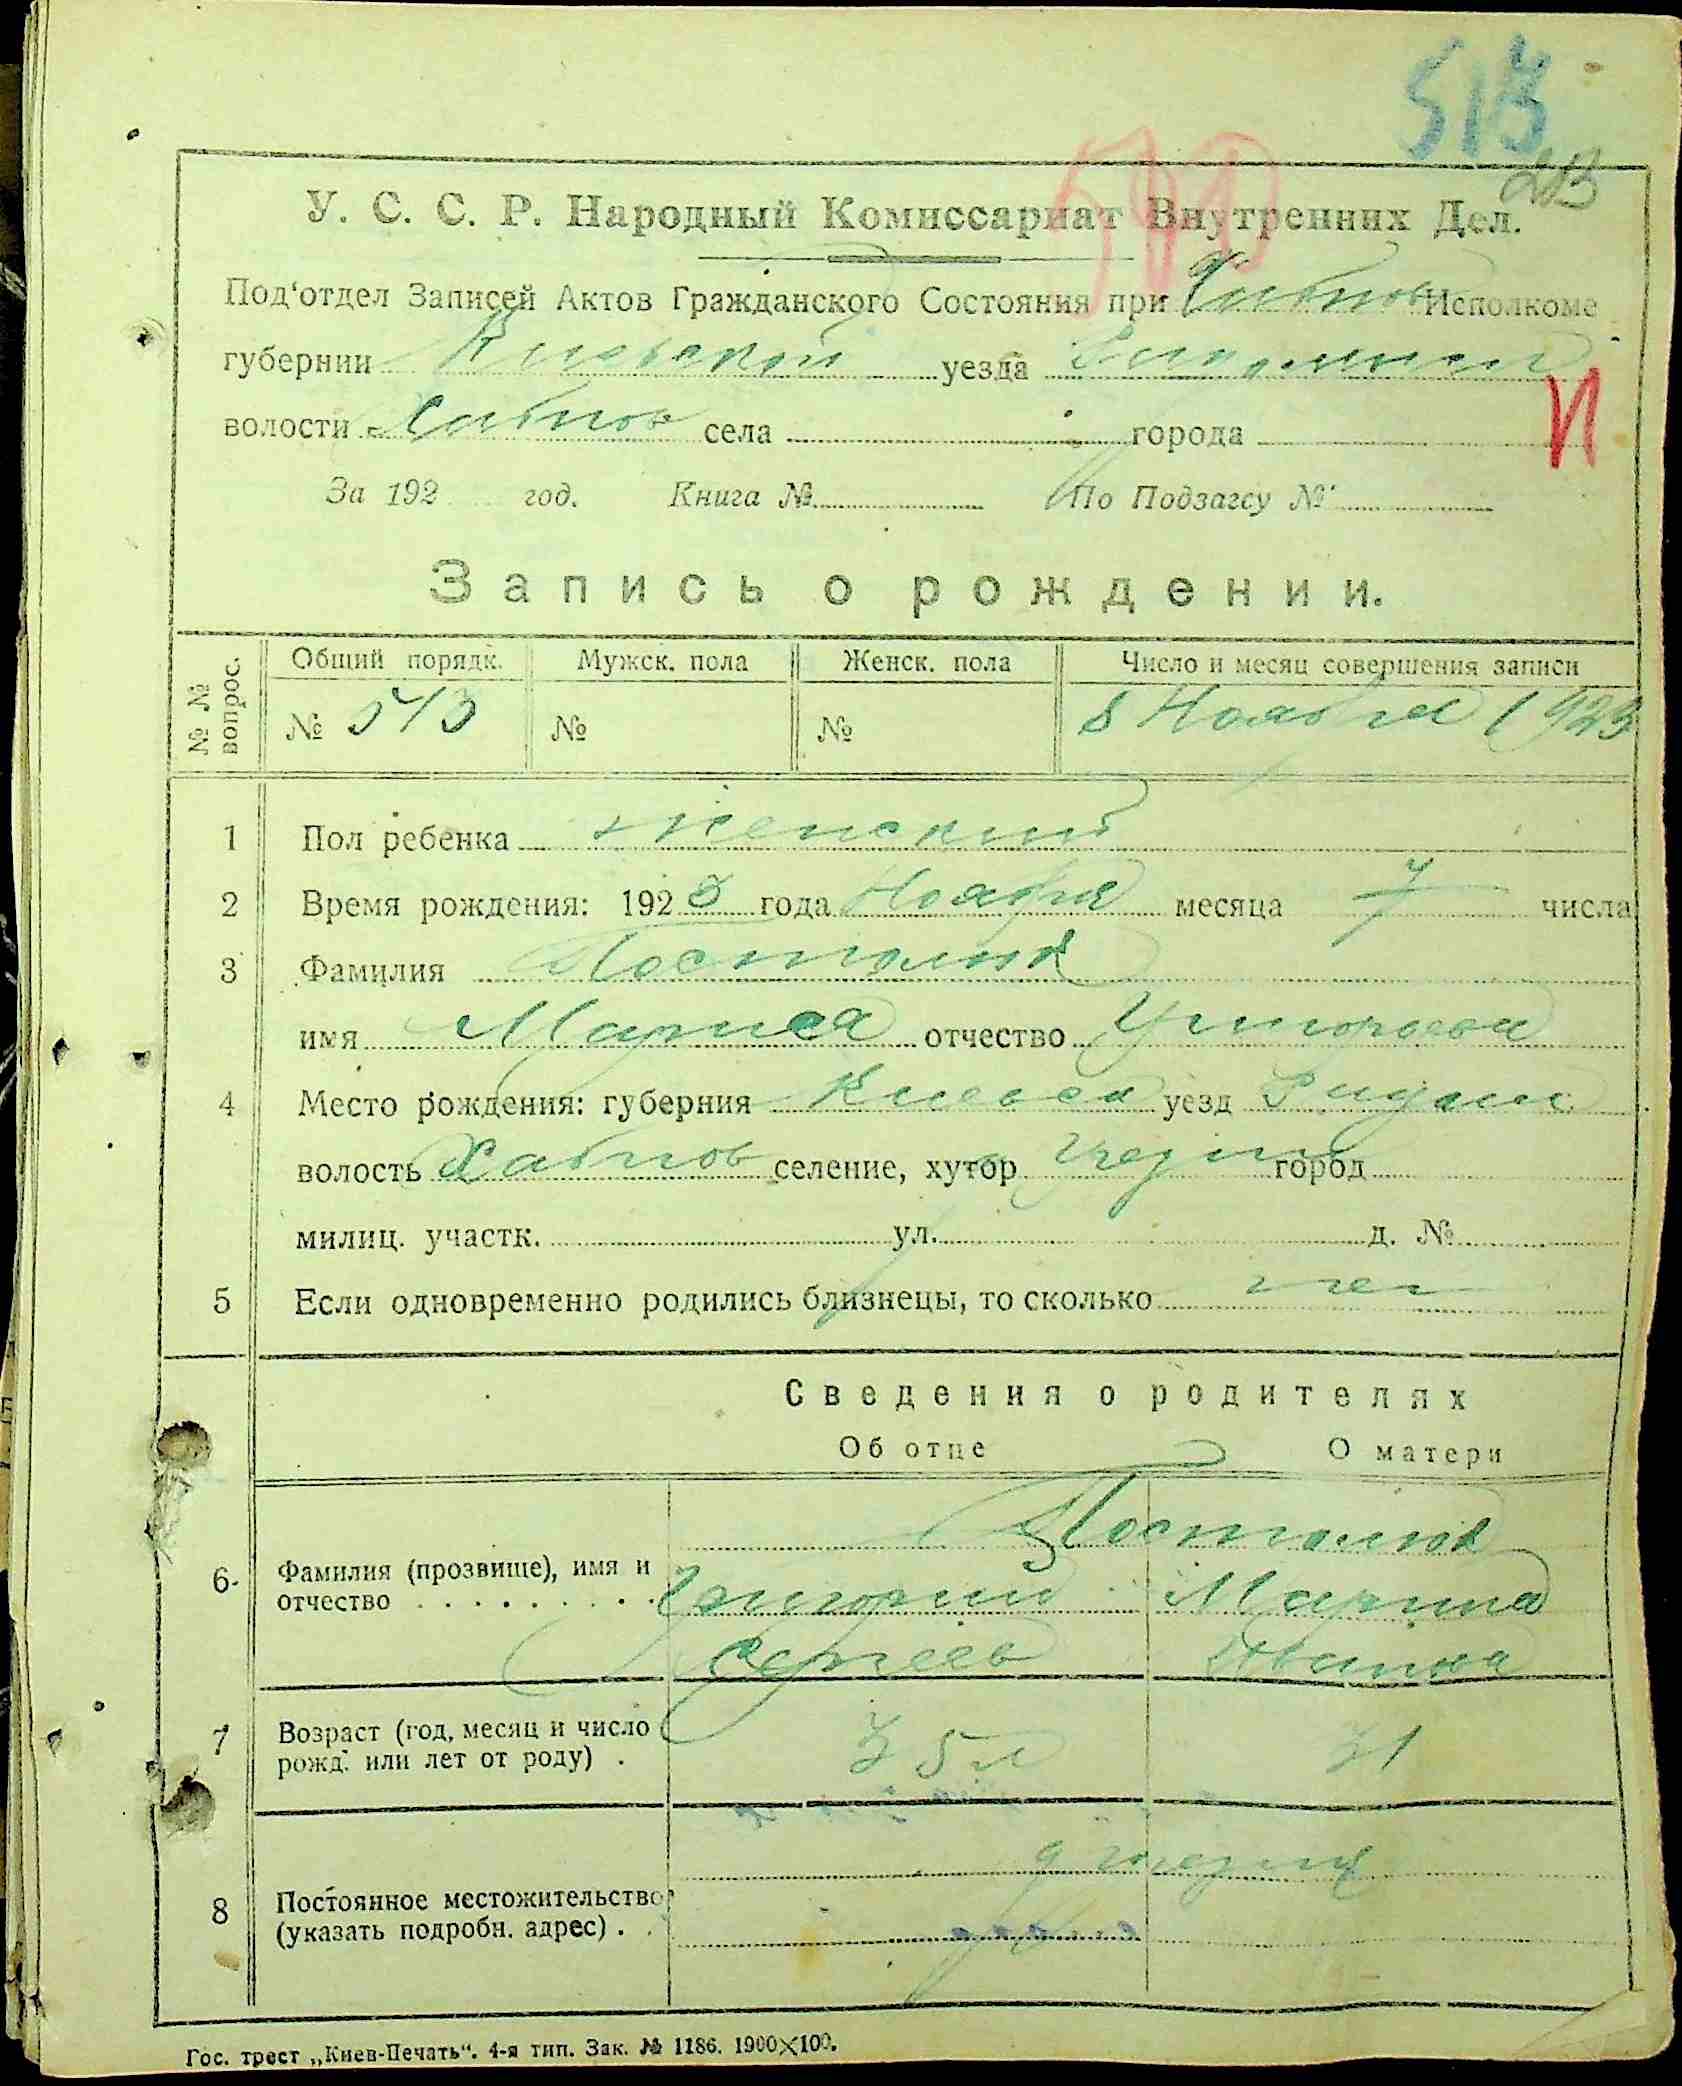 513
213
У. С. С. Р. Народный Комиссариат Внутренних Дел.
Под‘отдел Записей Актов Гражданского Состояния при Хабнов Исполкоме
губернии Киевской уезда
волости Хабнов села города
И
За 192 год. Книга № По Подзагсу №
Запись о рождении.
№ № вопрос. Общий порядк. Мужск. пола Женск. пола Число и месяц совершения записи
№ 513 № № 8 Ноября 1923
1 Пол ребенка женский
2 Время рождения: 1923 года Ноября месяца 7 числа
3 Фамилия Постолюк
имя Мария отчество Григорьева
4 Место рождения: губерния Киевск уезд
волость Хабнов селение, хутор город
милиц. участк. ул. д. №
5 Если одновременно родились близнецы, то сколько нет
Сведения о родителях
Об отце О матери
Постолюк
6 Фамилия (прозвище), имя и Григорий Марина
отчество . . . . . . . . . Сергеев
7 Возраст (год, месяц и число
рожд. или лет от роду) . 35 л 31
8 Постоянное местожительство
(указать подробн. адрес) . .
Гос. трест „Киев-Печать“. 4-я тип. Зак. № 1186. 1900×100.